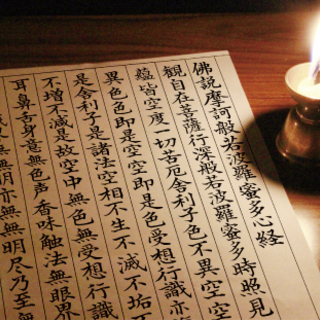 佛説摩訶般若波羅蜜多心経
觀自在菩薩行深般若波羅蜜多時照見
蘊皆空度一切苦厄舎利子色不異空空
異色色即是空空即是色受想行識亦
是舎利子是諸法空相不生不滅不垢不
不増不減是故空中無色無受想行識
耳鼻舌身意無色声香味触法無眼界
無無明亦無無明尽乃至無